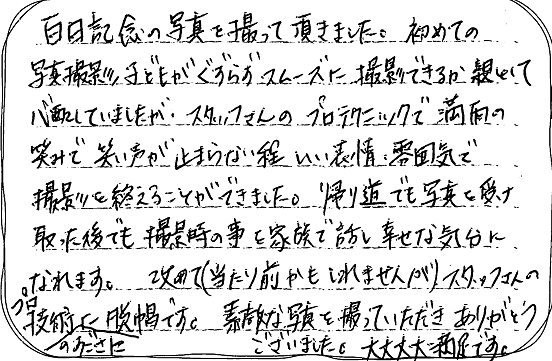 百日記念の写真を撮って頂きました。初めての
写真撮影、子どもがぐずらずスムーズに撮影できるか親として
心配していましたが、スタッフさんのプロテクニックで満面の
笑みで笑い声が止まらない程、いい表情・雰囲気で
撮影を終えることができました。帰り道でも写真を受け
取った後でも撮影時の事を家族で話し幸せな気分に
なれます。改めて(当たり前かもしれませんが)スタッフさんの
プロ技術に脱帽です。素敵な写真を撮っていただきありがとう
のすごさに
ございました。大大大大満足です。